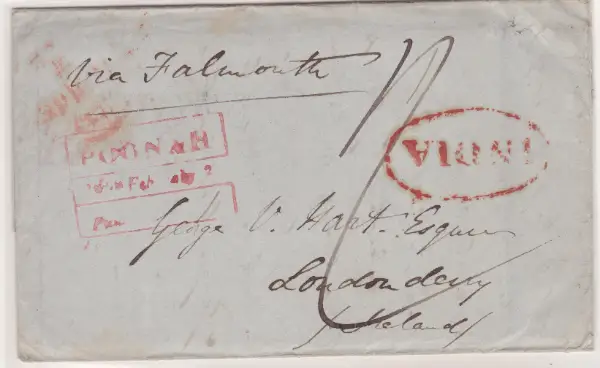 via Falmouth
POONAH
INDIA
George V. Hart. Esquire
Londonderry
/Ireland/